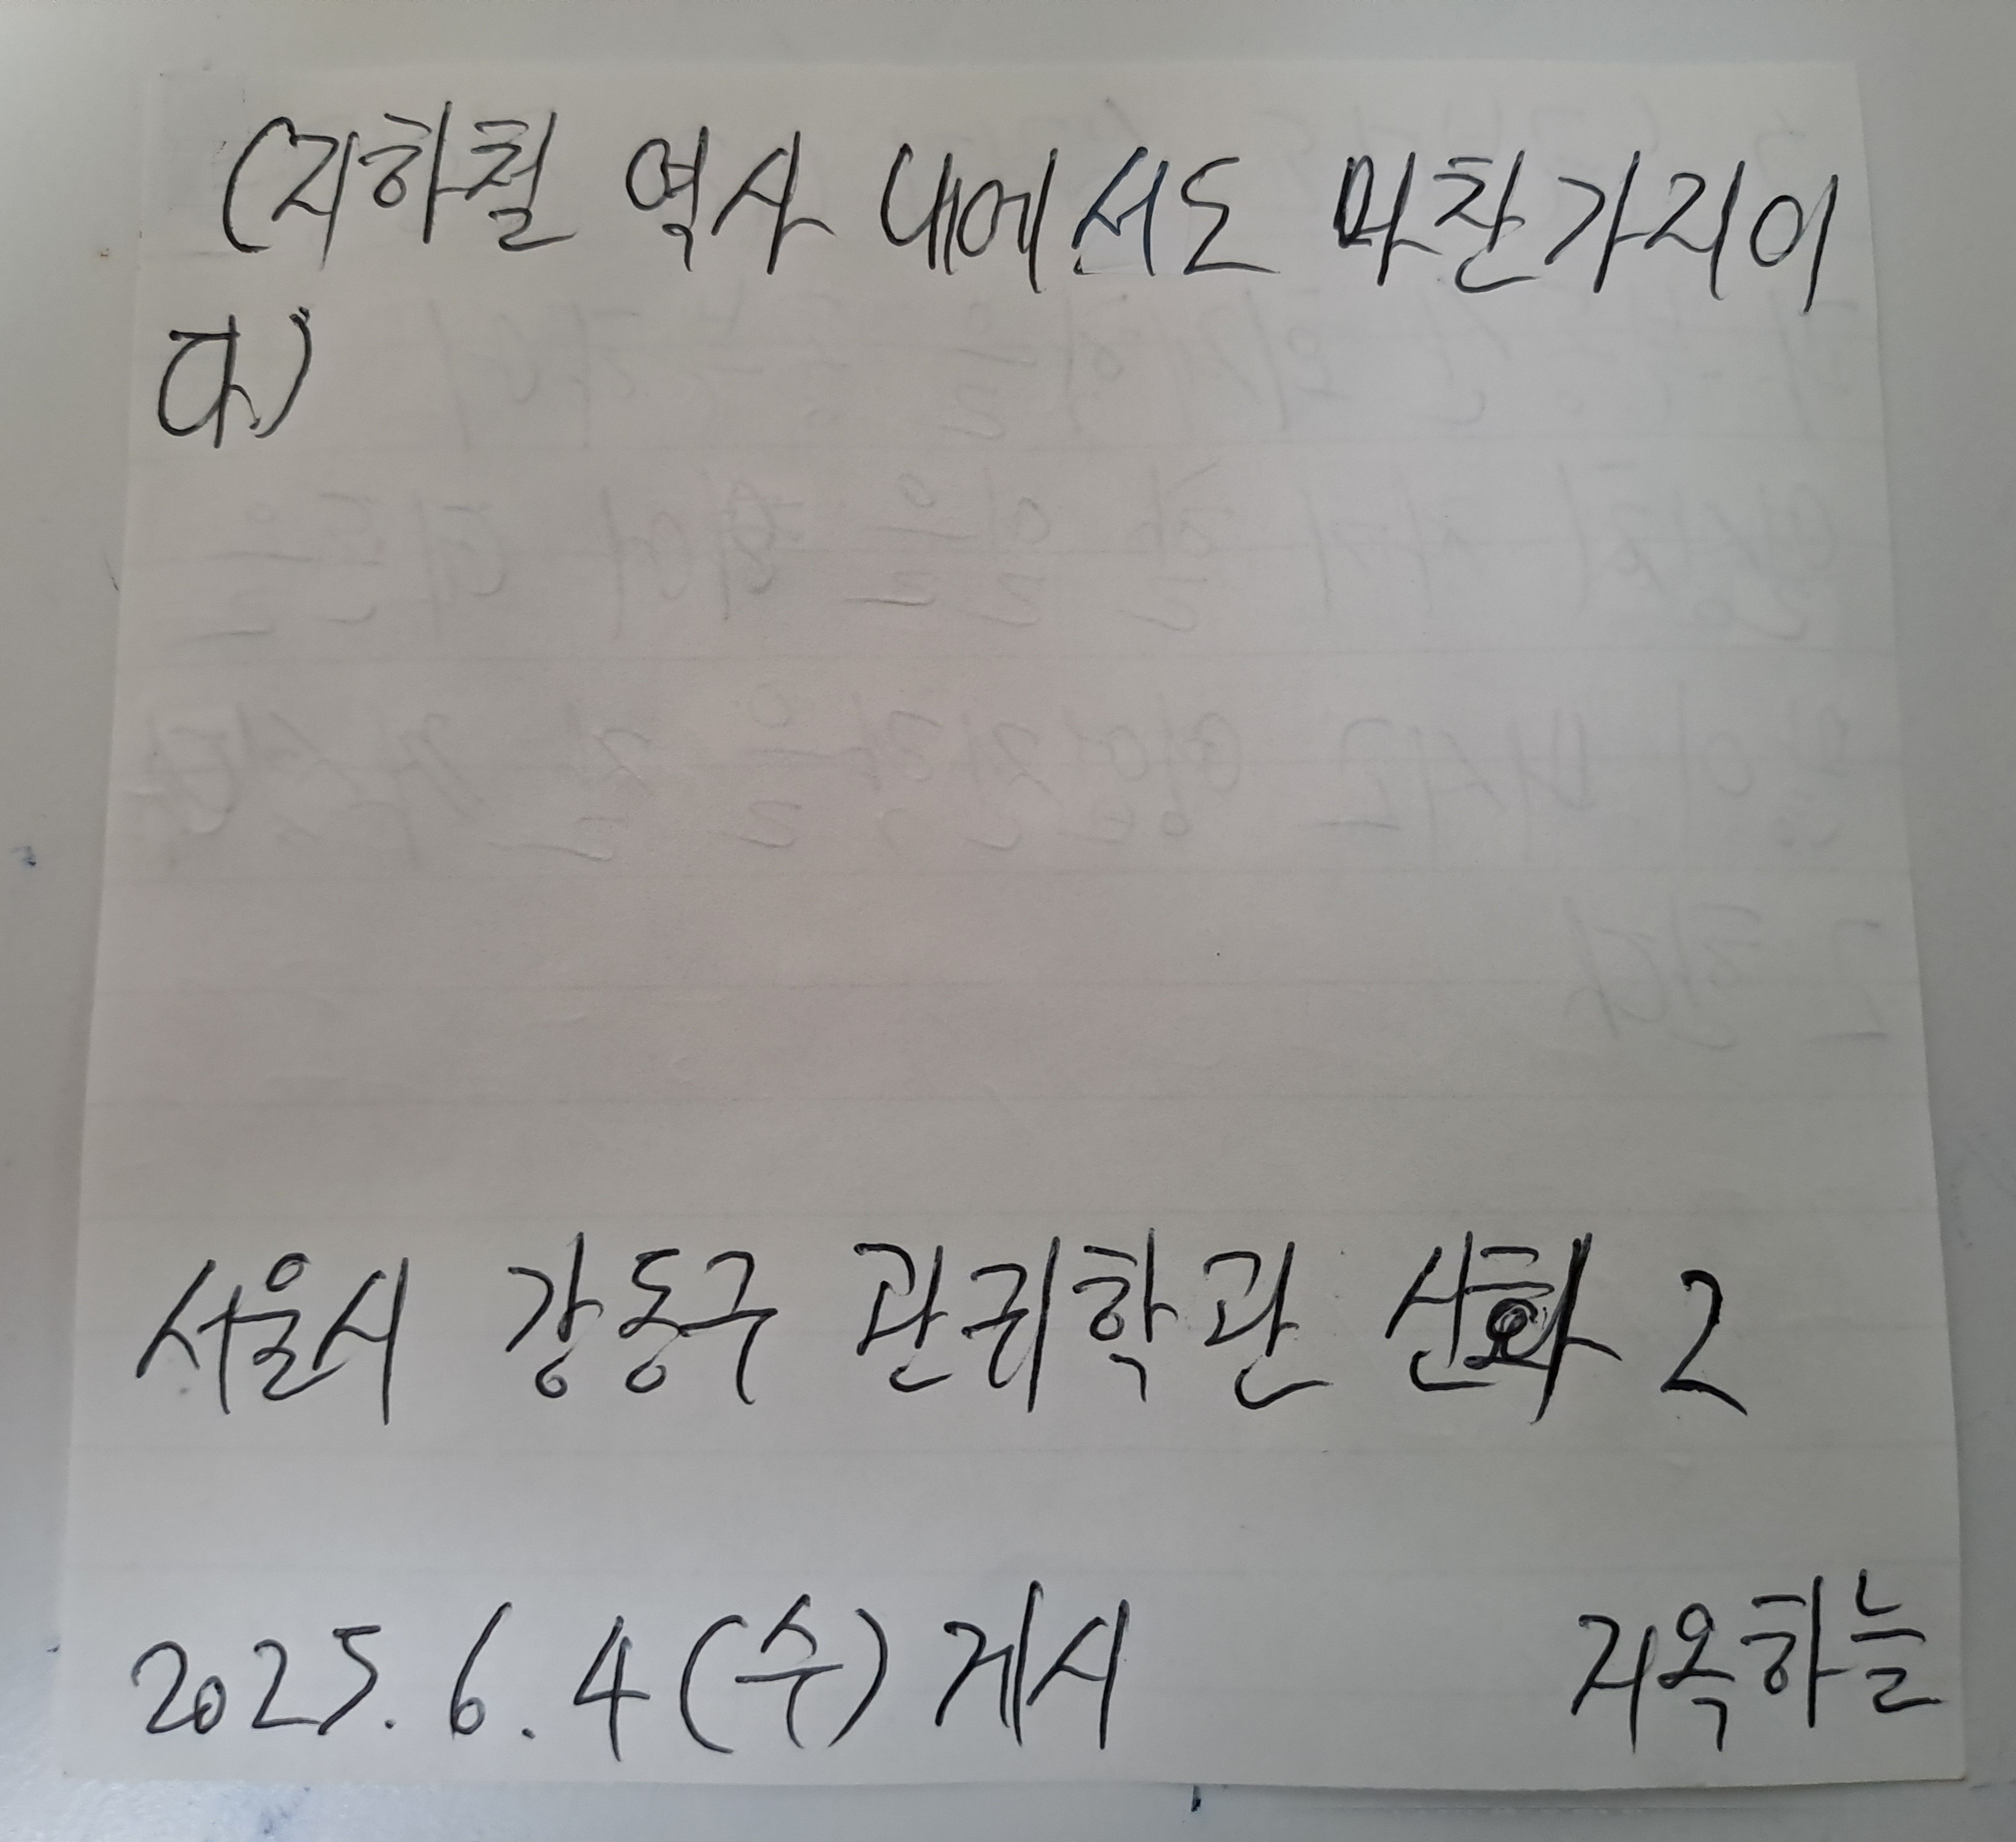 (지하철 역사 내에서도 마찬가지이
다.)
서울시 강동구 관귀학관 산화 2
2025. 6. 4 (수) 게시 지옥하늘